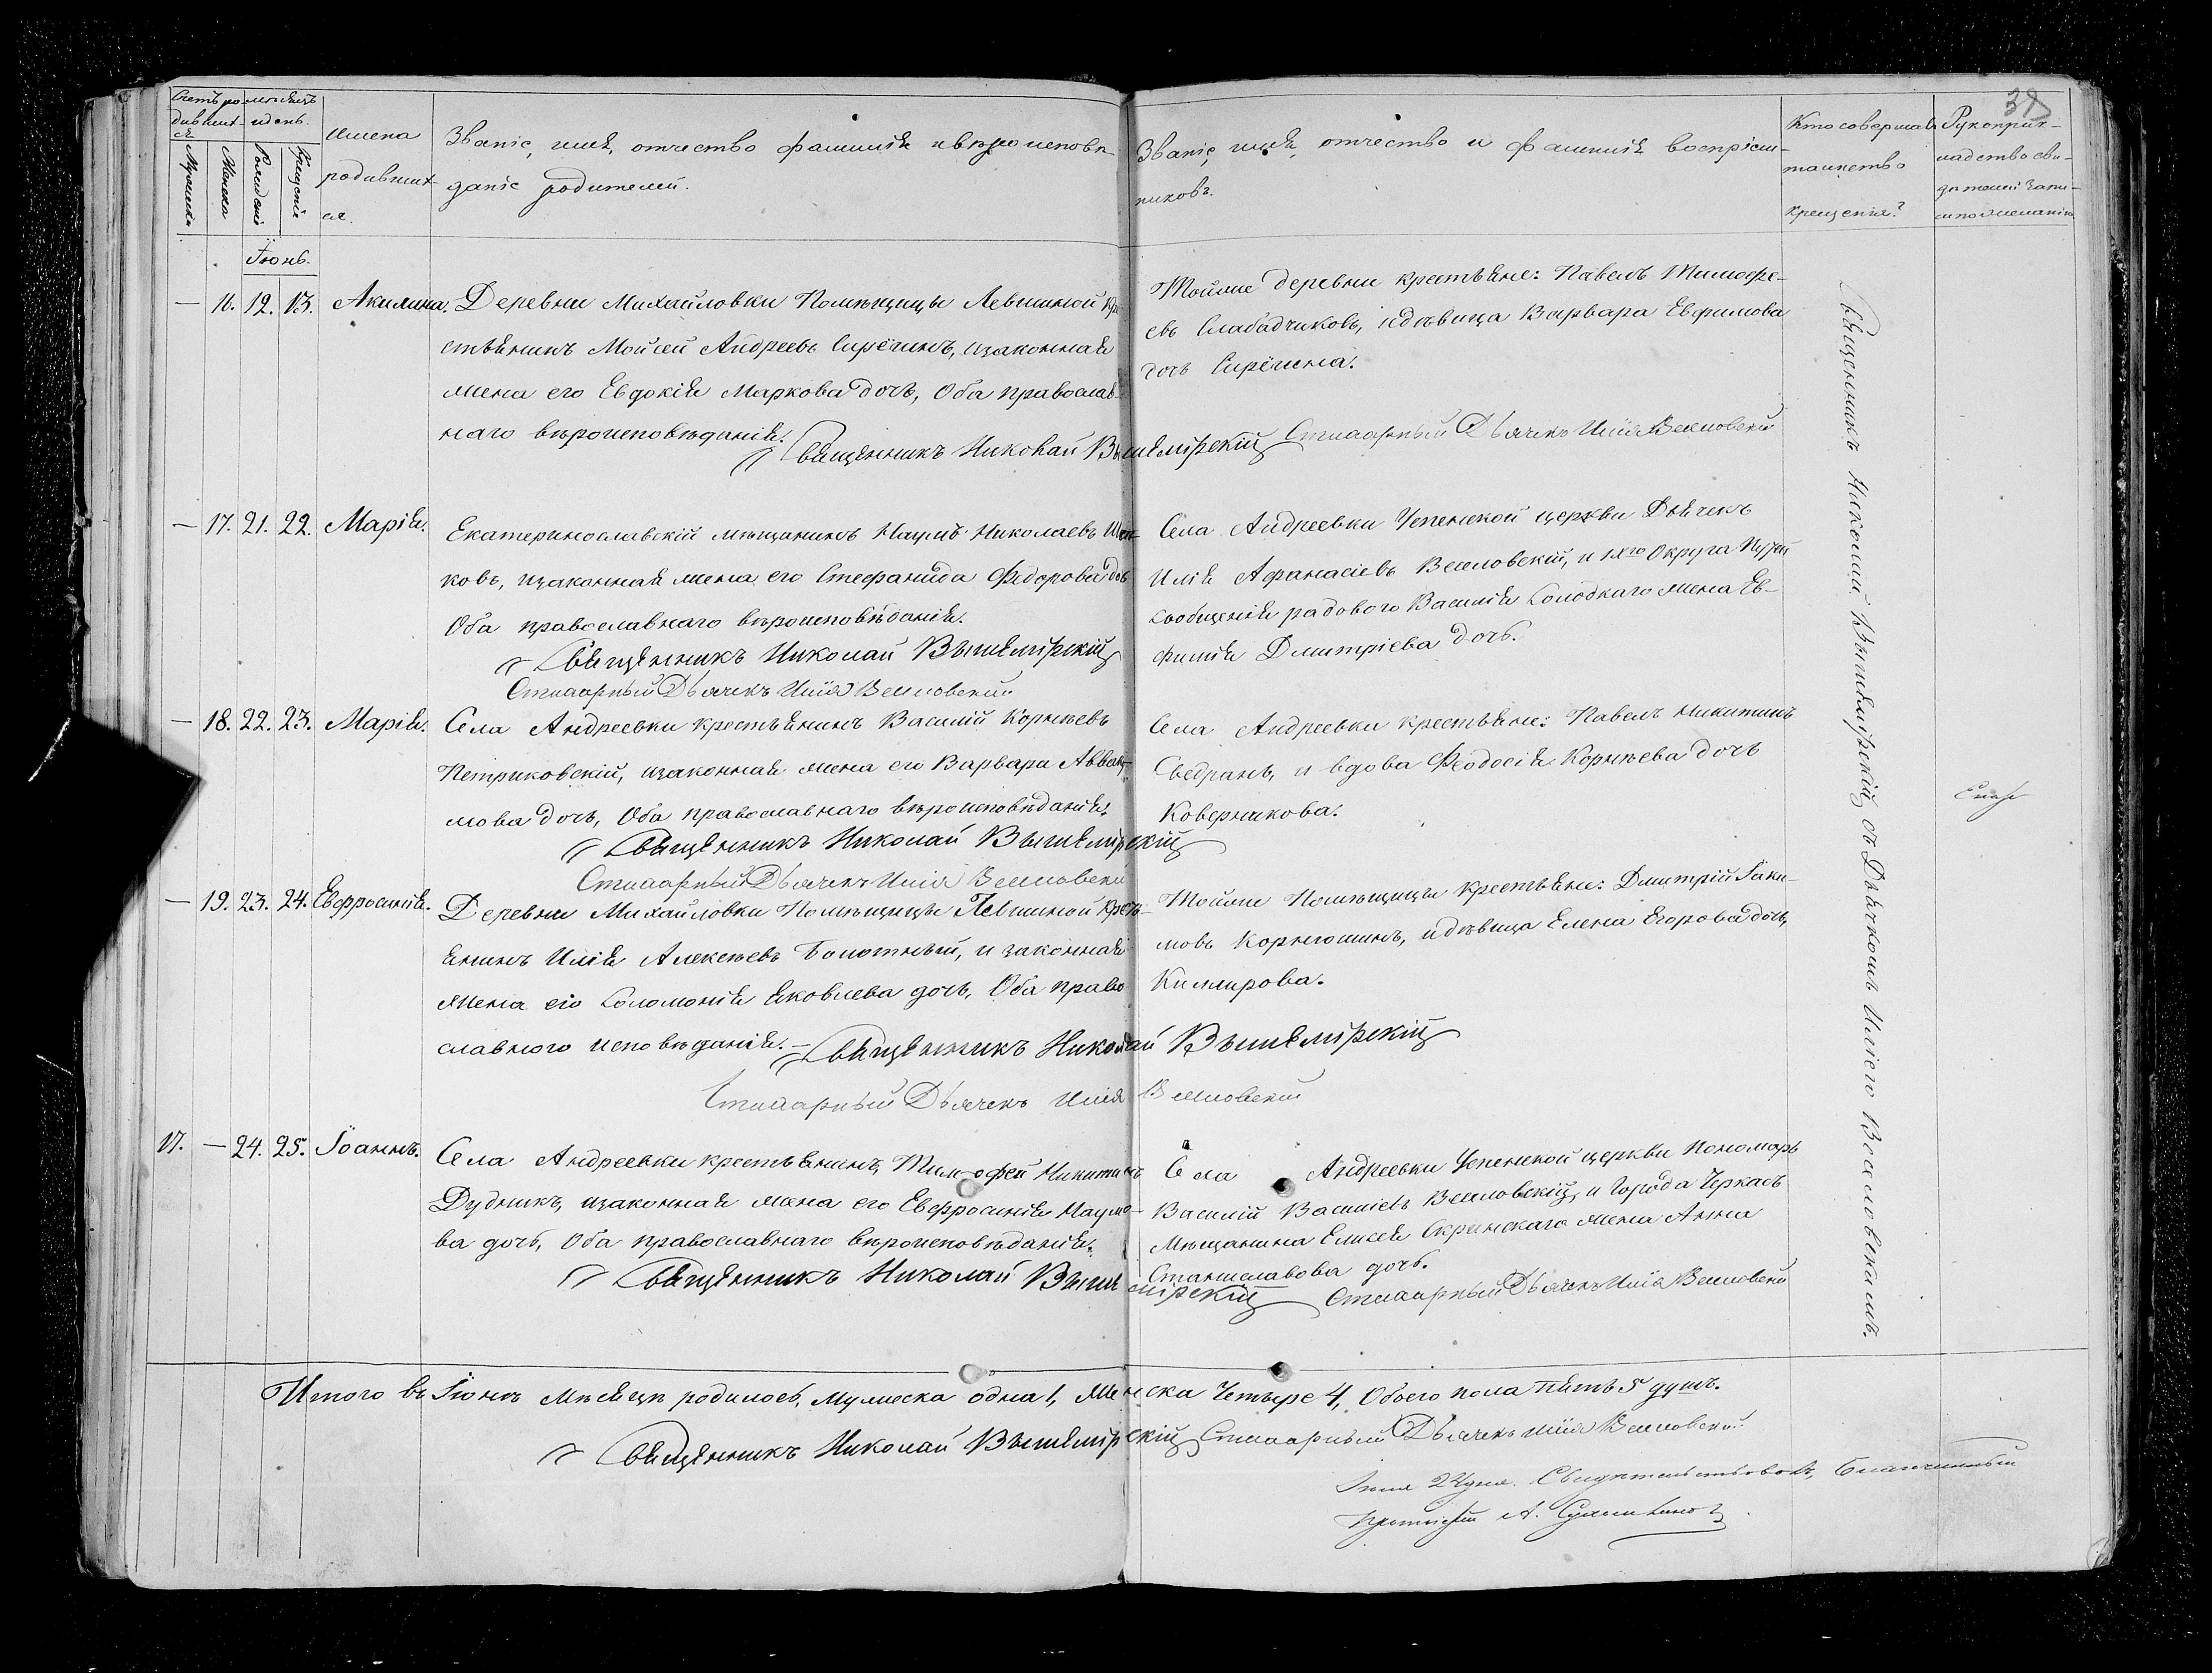 39
Счетъ ро-
дивших-
ся
мѣсяцъ
и день.
Мужеска
Женска
Рожденія
Крещенія
Имена
родивших-
ся.
Званіе, имя, отчество фамилія и вѣроисповѣ-
даніе родителей.
Званіе, имя, отчество и фамилія воспріем-
никовъ.
Кто совершалъ
таинство
крещенія?
Рукоприк-
ладство сви-
дѣтелей запи-
си по желанію
Іюнь.
— 16. 12. 13. Акилина.
Деревни Михайловки Помѣщицы Левшиной кре-
стьянинъ Моисей Андреевъ Сирёчинъ, изаконная
жена его Евдокія Маркова дочь, Оба православ-
наго вѣроисповѣданія.
Священникъ Николай Вышемірскій Стихарный Дьячекъ Илія Веселовскій
Тойже деревни крестьяне: Павелъ Тимофе-
евъ Слабадчиковъ, идѣвица Варвара Евфимова
дочь Сирёчина.
— 17. 21. 22. Марія.
Екатеринославскій мѣщанинъ Наумъ Николаевъ
ковъ, изаконная жена его Стефанида Ѳедорова дочь
Оба православнаго вѣроисповѣданія.
Священникъ Николай Вышемірскій
Стихарный Дьячекъ Илія Веселовскій
Села Андреевки Успенской церкви Дьячекъ
Илія Афанасіевъ Веселовскій, и Округа Путей
Сообщенія радового Василія Солодкаго жена Ев-
фимія Дмитріева дочь.
— 18. 22. 23. Марія.
Села Андреевки крестьянинъ Василій Корнѣевъ
Петриковскій, изаконная жена его Варвара Авваку-
мова дочь, Оба православнаго вѣроисповѣданія.
Священникъ Николай Вышемірскій
Стихарный Дьячекъ Илія Веселовскій
Села Андреевки крестьяне: Павелъ Никитинъ
Сведранъ, и вдова Ѳеодосія Корнѣева дочь
Коверникова.
— 19. 23. 24. Евфросинія.
Деревни Михайловки Помѣщицы Левшиной крестъ-
янинъ Илія Алексѣевъ Болотный, и законная
жена его Соломонія Яковлева дочь, Оба право
славного исповѣданія.—
Священникъ Николай Вышемірскій
Стихарный Дьячекъ Илія Веселовскій
Тойже Помѣщицы крестьяне: Дмитрій Іаки-
мовъ Корнюшинъ, идѣвица Елена Егорова дочь,
Кимирова.
17. — 24. 25. Іоаннъ.
Села Андреевки крестьянинъ, Тимофей Никитинъ
Дудникъ, изаконная жена его Евфросинія Наумо-
ва дочь, Оба православнаго вѣроисповѣданія.
Священникъ Николай Вышемірскій Стихарный Дьячекъ Илія Веселовскій
Села Андреевки Успенской церкви Пономарь
Василій Василіевъ Веселовскій, и Города Черкасъ
Мѣщанина Елисея Скринскаго жена Анна
Станиславова дочь.
Священникъ Николай Вышемірскій съ Дьячкомъ Иліею Веселовскимъ.
Итого въ Іюнѣ Мѣсяцѣ родилось, Мужеска одна 1, Женска Четыре 4, Обоего пола пять 5 душъ.
Священникъ Николай Вышемірскій Стихарный Дьячекъ Илія Веселовскій.
дня. Свидѣтельствовалъ, Благочинный
Протоіерей А.